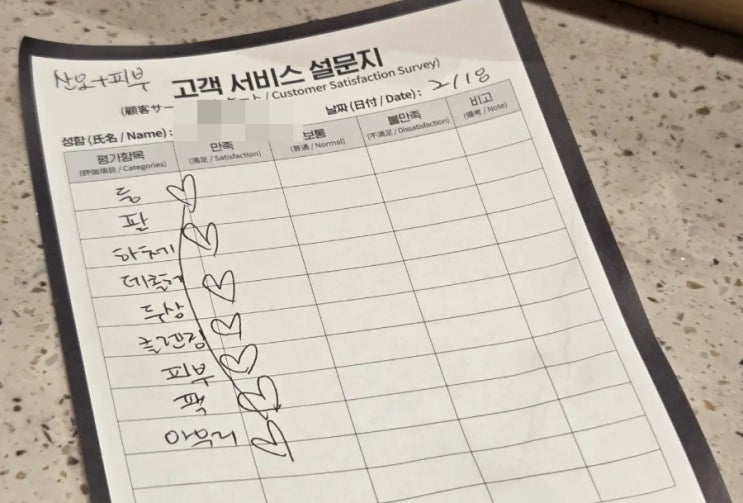 산모+피부
고객 서비스 설문지
(顧客サー ート / Customer Satisfaction Survey)
성함 (氏名 / Name) : 날짜 (日付 / Date) : 2/18
평가항목 만족 보통 불만족 비고
(評価項目 / Categories) (満足 / Satisfaction) (普通 / Normal) (不満足 / Dissatisfaction) (備考 / Note)
등
팔
하체
데콜테
두상
림프
피부